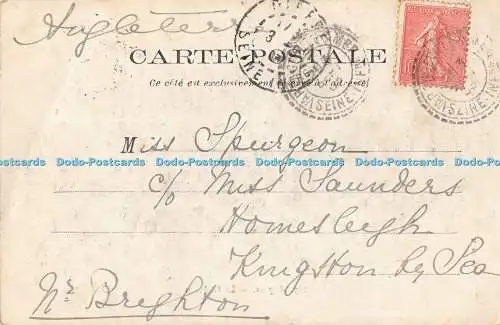 Angleterre
CARTE POSTALE
Ce côté est exclusivement réservé à l'adresse
Miss Spurgeon
Dodo-Postcards Dodo-Postcards Dodo-Postcards Dodo-Postcards Dodo-Postcards
c/o Miss Saunders
Homesleigh
Kingston by Sea
Nr Brighton